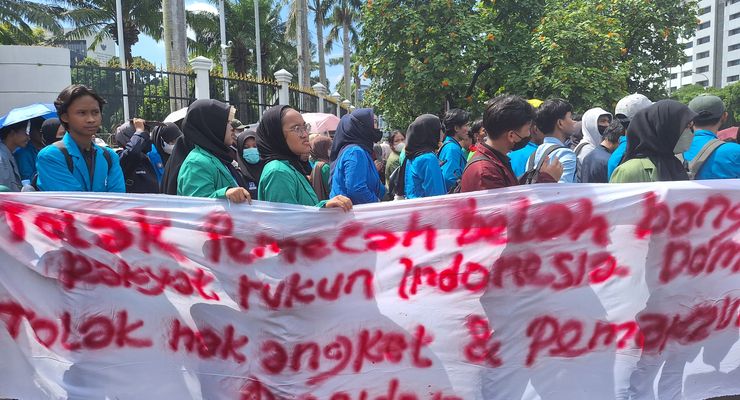 Tolak Pemecah belah bang
Rakyat rukun Indonesia. Dam
Tolak hak angket & Pemakzul
Presiden